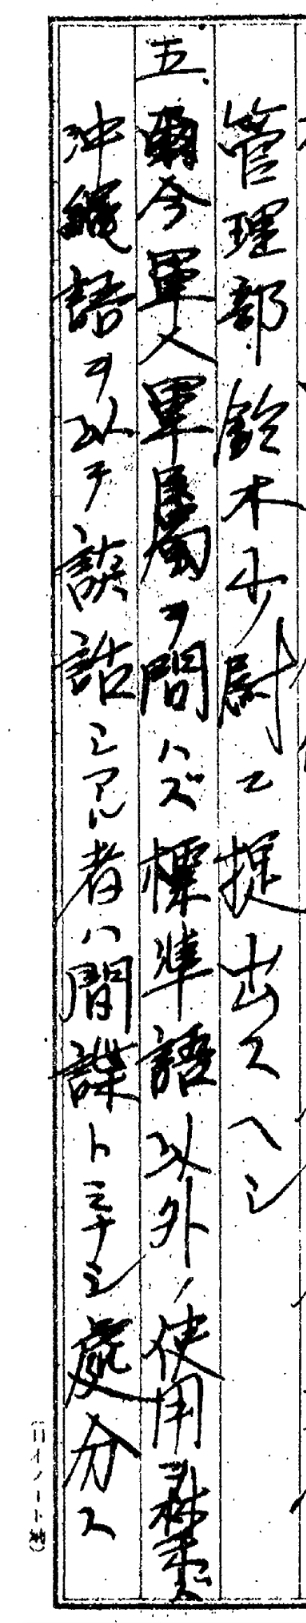 管理部鈴木少尉ニ提出スヘシ
五、爾今軍人軍属ヲ問ハズ標準語以外ノ使用ヲ禁ズ
沖縄語ヲ以テ談話シアル者ハ間諜トミナシ処分ス